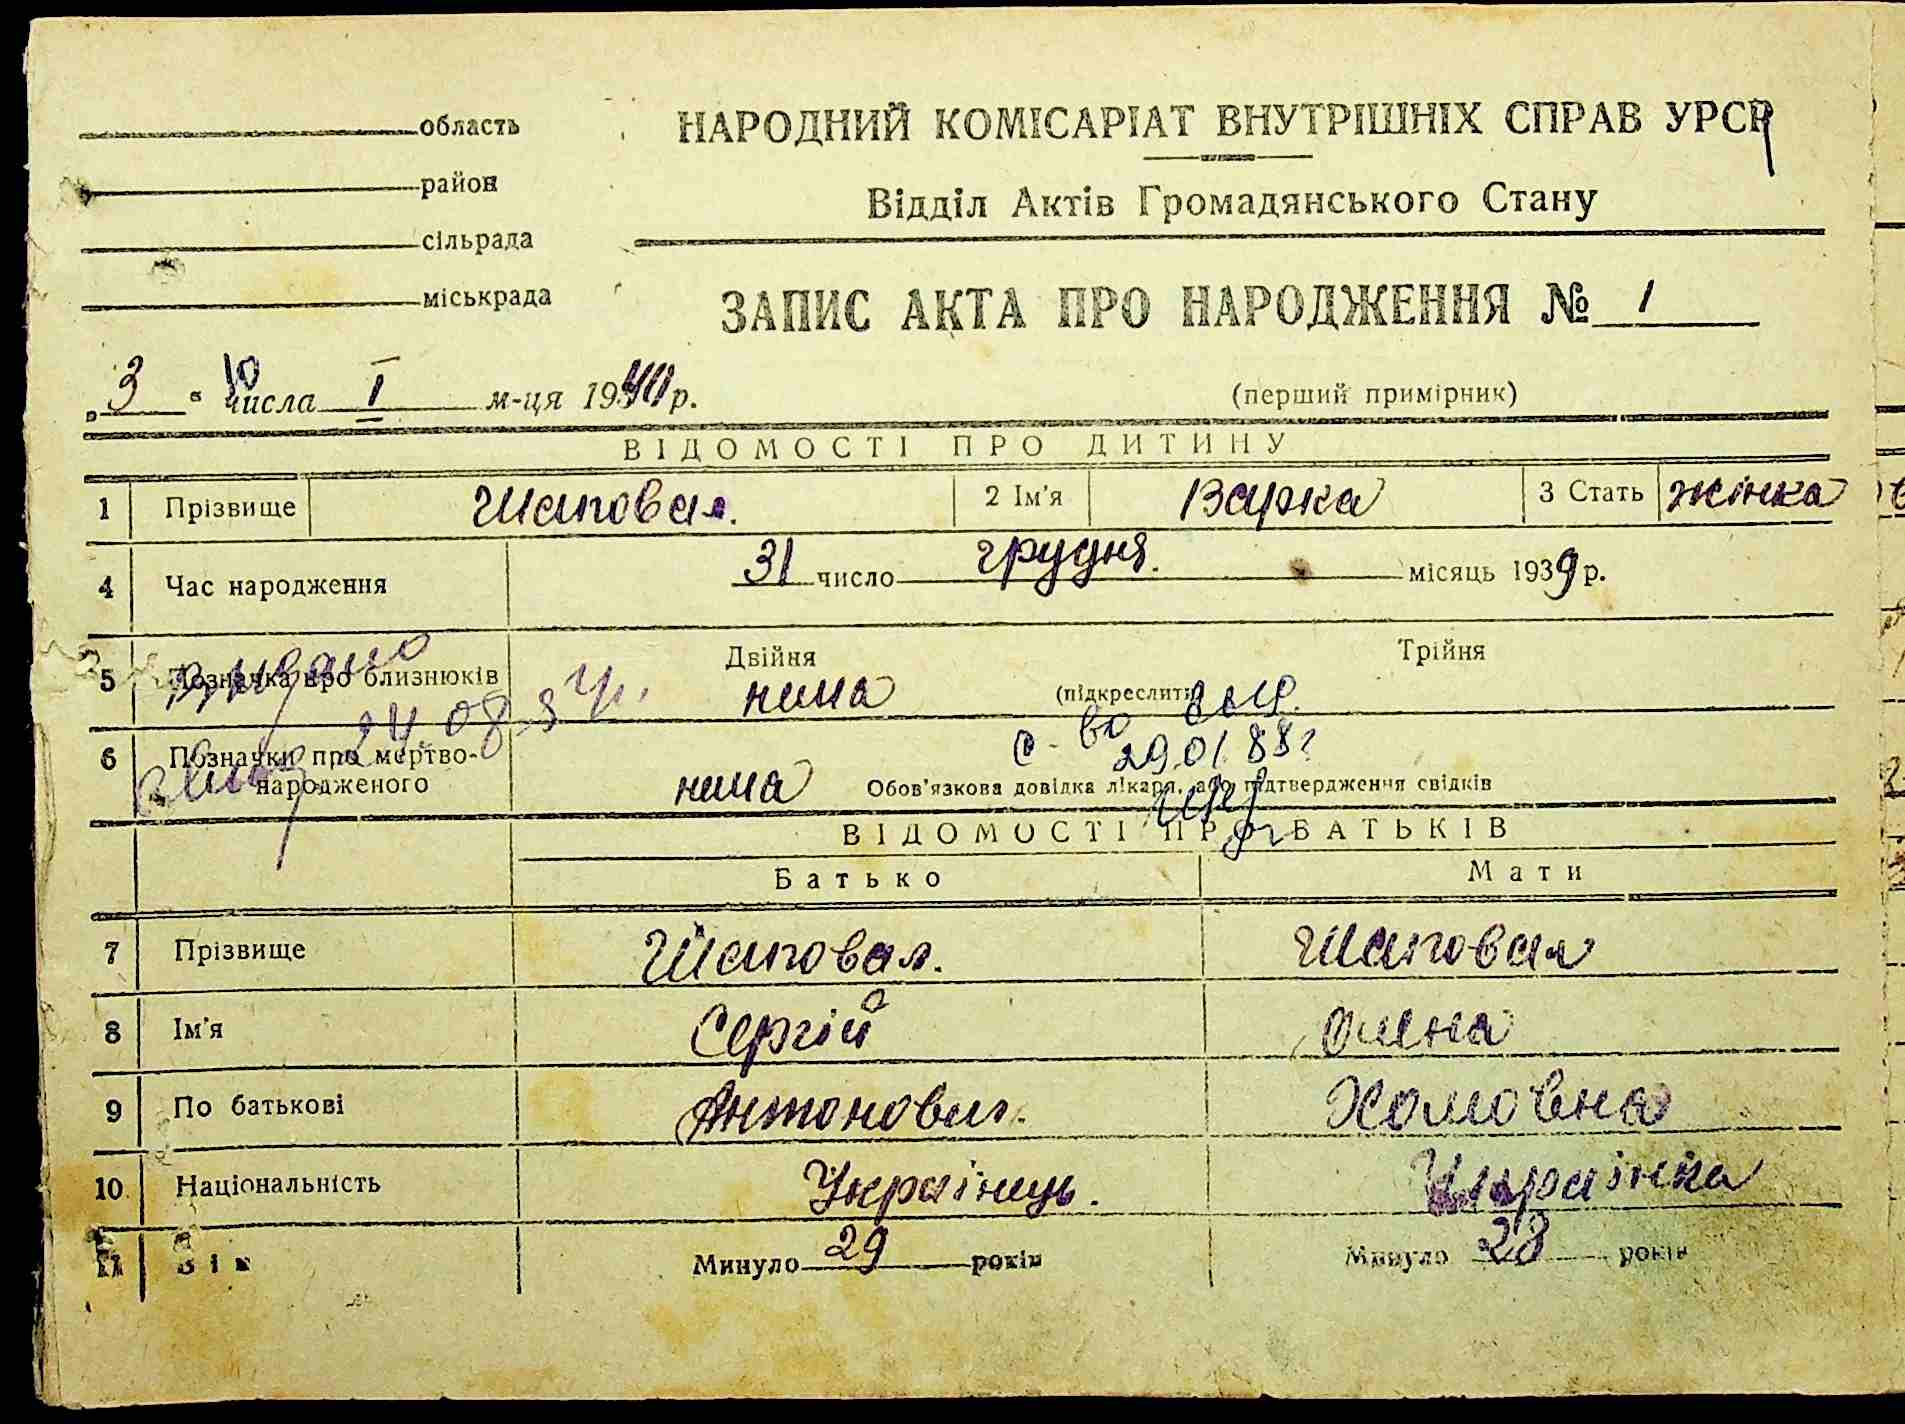 область
НАРОДНИЙ КОМІСАРІАТ ВНУТРІШНІХ СПРАВ УРСР
район
Відділ Актів Громадянського Стану
сільрада
міськрада
ЗАПИС АКТА ПРО НАРОДЖЕННЯ № 1
„3“ числа I м-ця 1940 р.
(перший примірник)
ВІДОМОСТІ ПРО ДИТИНУ
1 Прізвище Шаповал. 2 Ім'я Варка 3 Стать жінка
4 Час народження 31 число грудня. місяць 1939 р.
5 Позначка про близнюків Двійня нема (підкреслити) Трійня
24.08
с-во
29.01.88г
6 Позначки про мертво-
народженого нема Обов'язкова довідка лікаря, або підтвердження свідків
ВІДОМОСТІ ПРО БАТЬКІВ
Батько Мати
7 Прізвище Шаповал. Шаповал
8 Ім'я Сергій Олена
9 По батькові Антонович. Хомовна
10 Національність Українець. Українка
11 Вік Минуло 29 років Минуло 28 років